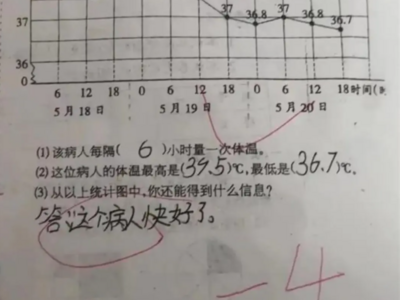 37 36.8 37 36.8 36.7
37
36
0
6 12 18 0 6 12 18 0 6 12 18 时间(时
5月18日 5月19日 5月20日
(1)该病人每隔(6)小时量一次体温。
(2)这位病人的体温最高是(39.5)℃,最低是(36.7)℃。
(3)从以上统计图中,你还能得到什么信息?
答:这个病人快好了。
-4